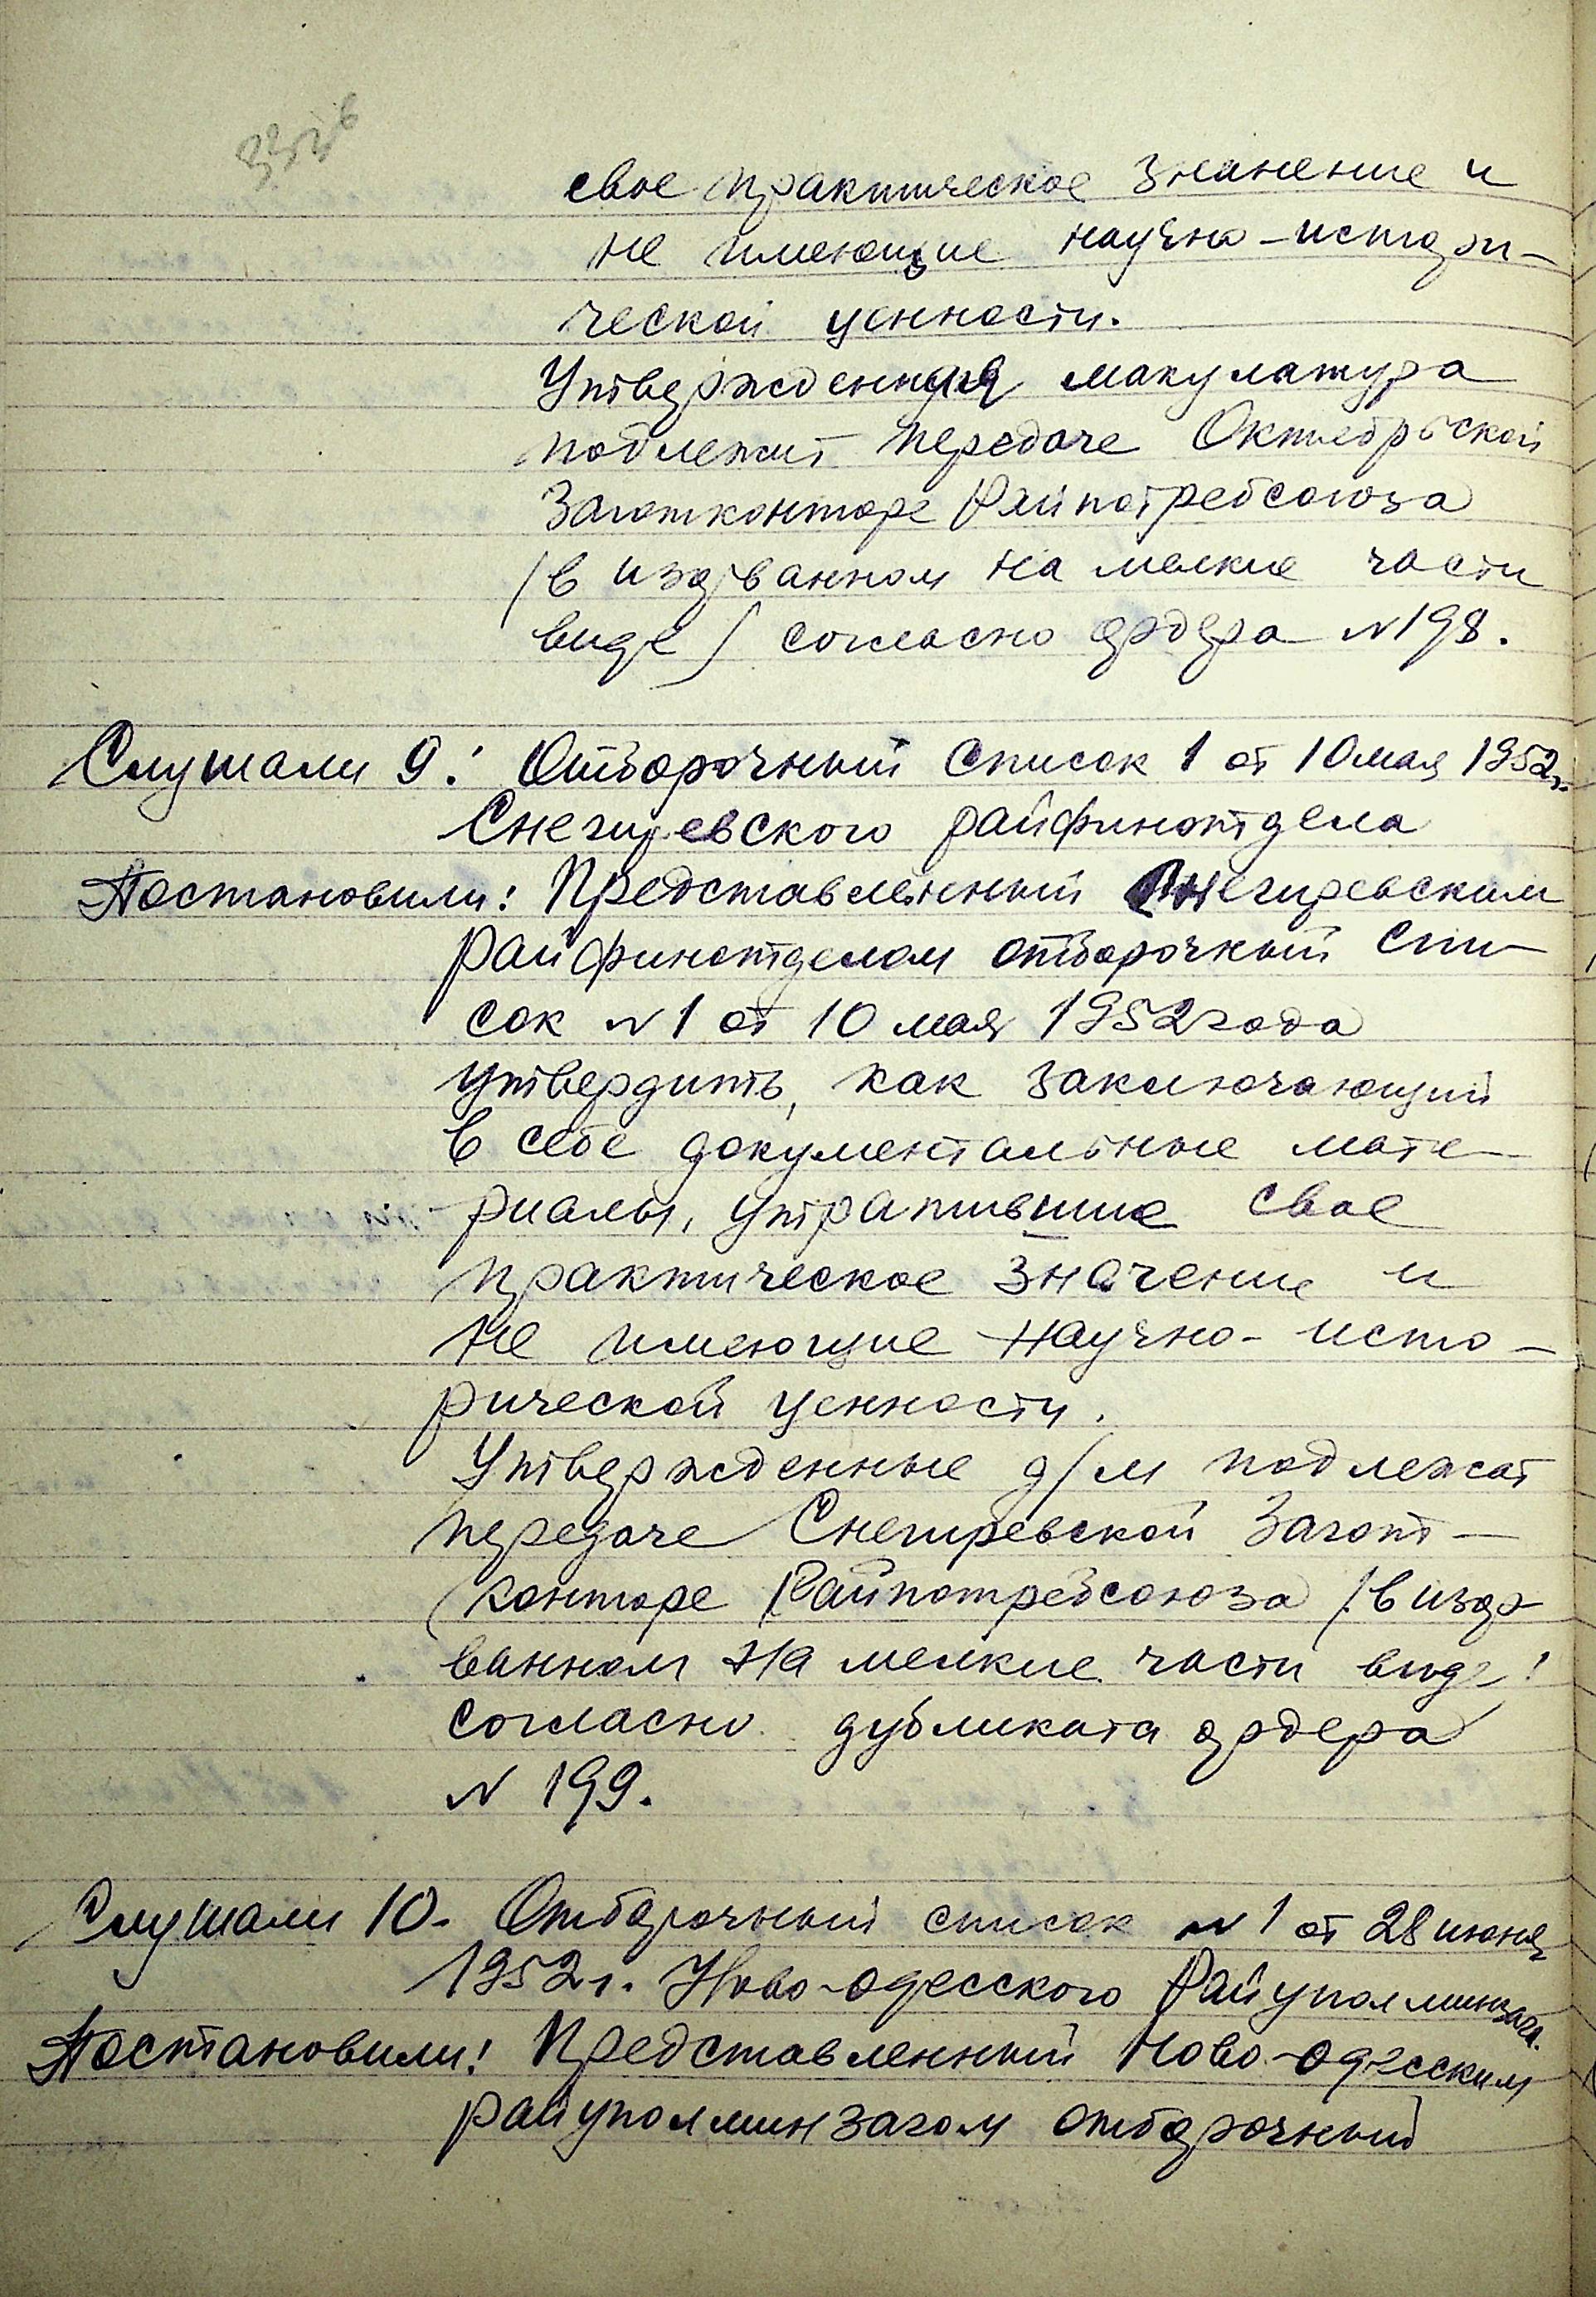 свое практическое значение и
не имеющие научно-истори-
ческой ценности.
Утвержденная макулатура
подлежит передаче Октябрьской
Заготконторе Райпотребсоюза
/в изорванном на мелкие части
виде/ согласно ордера №198.
Слушали 9: Отборочный список 1 от 10 мая 1952г.
Снегиревского райфинотдела
Постановили: Представленный Снегиревским
райфинотделом отборочный спи-
сок №1 от 10 мая 1952 года
утвердить, как заключающий
в себе документальные мате-
риалы, утратившие свое
практическое значение и
не имеющие научно-исто-
рической ценности.
Утвержденные д/м подлежат
передаче Снегиревской Загот-
конторе Райпотребсоюза /в изор-
ванном на мелкие части виде/
согласно дубликата ордера
№ 199.
Слушали 10. Отборочный список №1 от 28 июня
1952г. Ново-Одесского Райуполминзага.
Постановили: Представленный Ново-Одесским
райуполминзагом отборочный